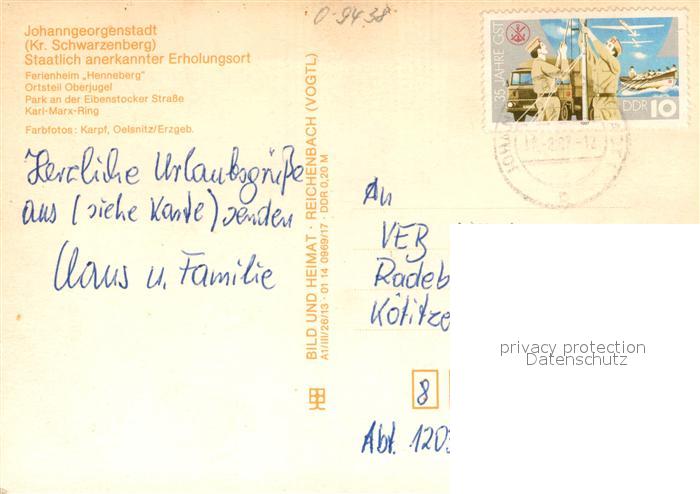 O-9438
Johanngeorgenstadt
(Kr. Schwarzenberg)
Staatlich anerkannter Erholungsort
Ferienheim „Henneberg"
Ortsteil Oberjugel
Park an der Eibenstocker Straße
Karl-Marx-Ring
Farbfotos: Karpf, Oelsnitz/Erzgeb.
Herzliche Urlaubsgrüße
aus (siehe Karte) senden
Claus u. Familie
BILD UND HEIMAT · REICHENBACH (VOGTL)
A1/III/26/13 · 01 14 0969/17 · DDR 0,20 M
35 JAHRE GST
DDR 10
JOHA
An
VEB
Radeb
Kötitze
8
Abt. 120
privacy protection
Datenschutz